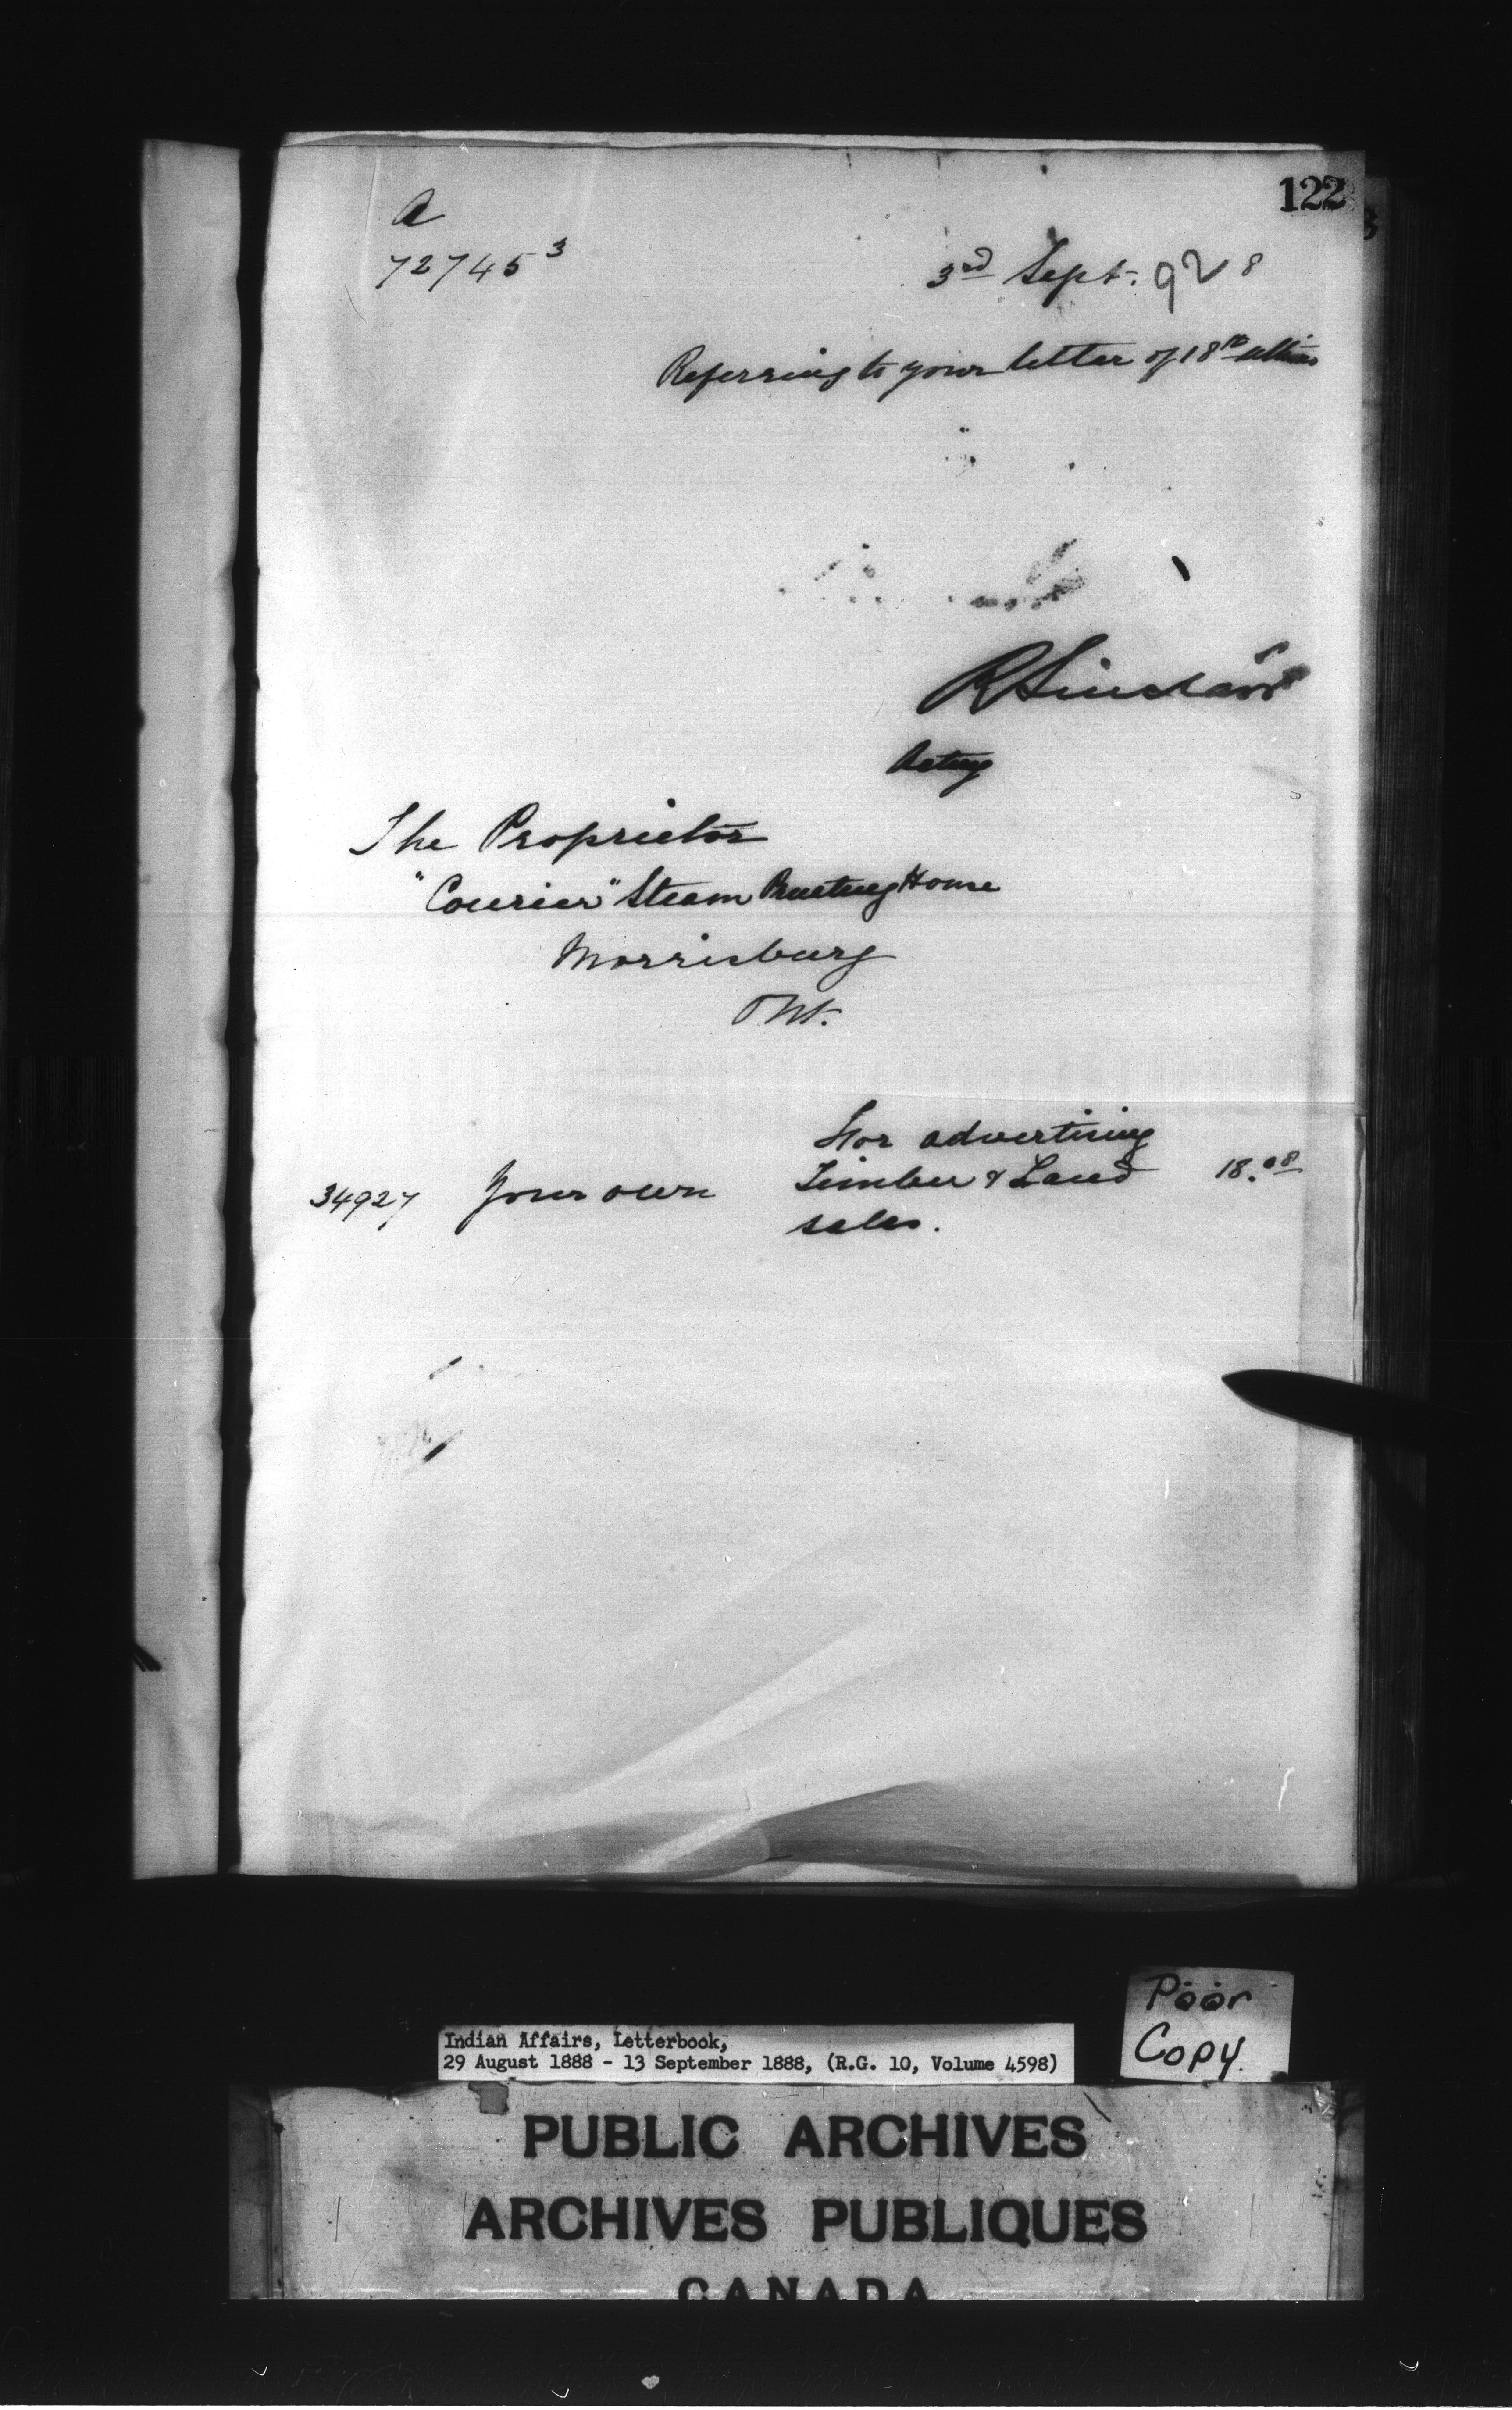 122
A
72745 3
3rd Sept. 92 8
Referring to your letter of 18th ultimo
R Sinclair
Acting
The Proprietor
"Courier" Steam Printing House
Morrisburg
Ont.
For advertising
34927 Your own Timber & Land 18.08
sales.
Poor
Copy.
Indian Affairs, Letterbook,
29 August 1888 - 13 September 1888, (R.G. 10, Volume 4598)
PUBLIC ARCHIVES
ARCHIVES PUBLIQUES
CANADA